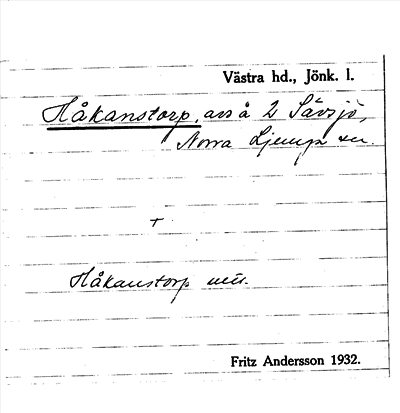 Västra hd., Jönk. l.
Håkanstorp, avs å 2 Sävsjö,
Norra Ljunga sn.
+
Håkanstorp mt.
Fritz Andersson 1932.